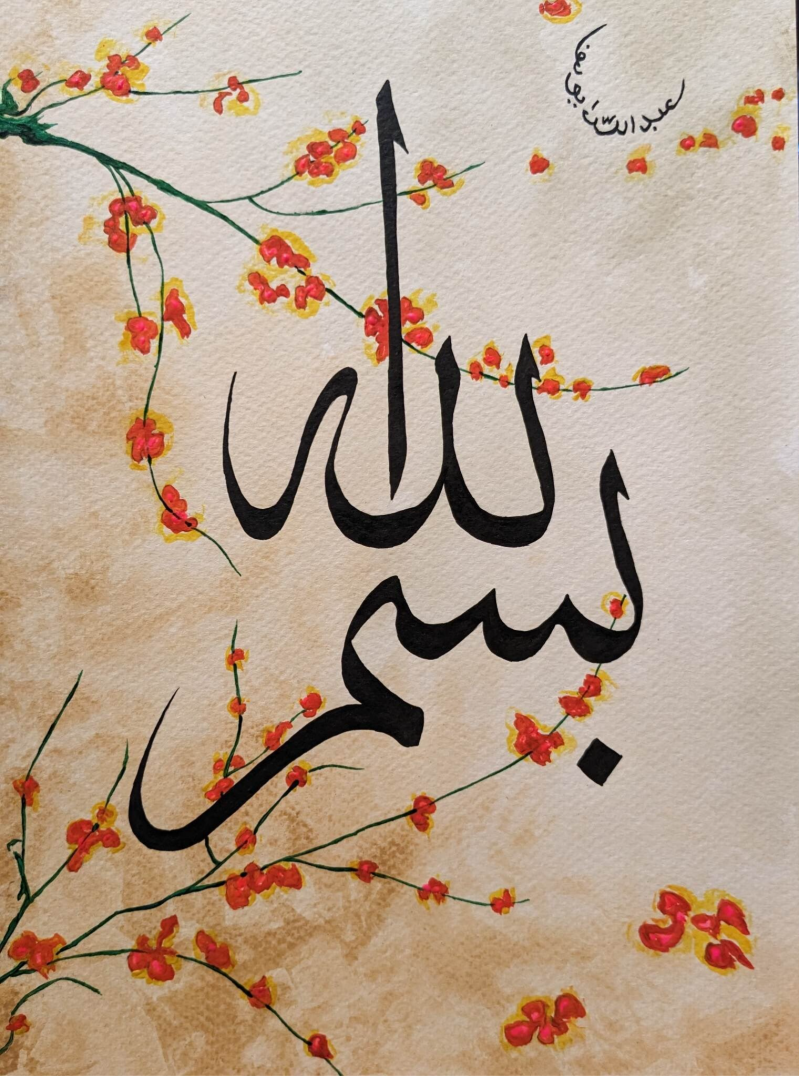 بسم
الله
عبدالله